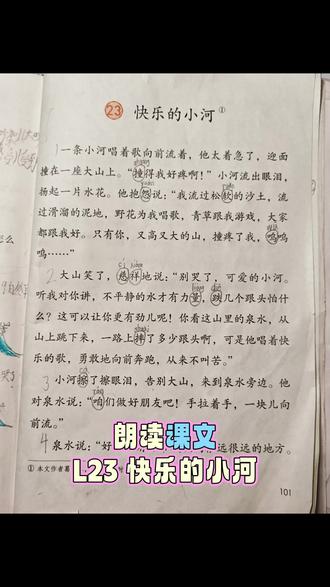 23 快乐的小河①
1 一条小河唱着歌向前流着，他太着急了，迎面
撞在一座大山上。“撞得我好疼啊！”小河流出眼泪，
扬起一片水花。他抱怨说：“我流过松软的沙土，流
过滑溜的泥地，野花为我唱歌，青草跟我游戏，大家
都跟我好。只有你，又高又大的山，撞疼了我，呜呜
呜……”
2 大山笑了，慈祥地说：“别哭了，可爱的小河。
听我对你讲，不平静的水才有力量，跌几个跟头怕什
么？这可以让你更有劲儿呢！你看这山里的泉水，从
山上跳下来，一路上摔了多少跟头啊，可是他唱着快
乐的歌，勇敢地向前奔跑，从来不叫苦。”
3 小河擦了擦眼泪，告别大山，来到泉水旁边。他
对泉水说：“咱们做好朋友吧！手拉着手，一块儿向
前流。”
4 泉水说：“好
远很远的地方。
朗读课文
L23 快乐的小河
① 本文作者
101